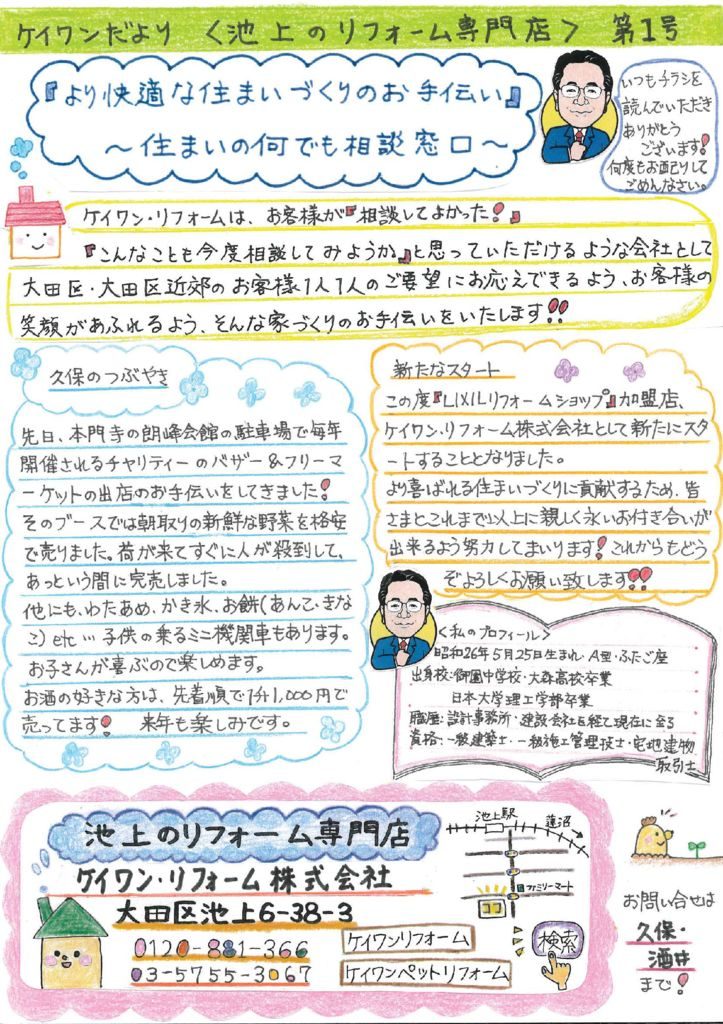 ケイワンだより 〈池上のリフォーム専門店〉 第1号
『より快適な住まいづくりのお手伝い』
～住まいの何でも相談窓口～
いつもチラシを
読んでいただき
ありがとう
ございます!
何度もお配りして
ごめんなさい。
ケイワン・リフォームは、お客様が『相談してよかった!』
『こんなことも今度相談してみようか』と思っていただけるような会社として
大田区・大田区近郊のお客様1人1人のご要望にお応えできるよう、お客様の
笑顔があふれるよう、そんな家づくりのお手伝いをいたします!!
久保のつぶやき
先日、本門寺の朗峰会館の駐車場で毎年
開催されるチャリティーのバザー&フリーマ
ーケットの出店のお手伝いをしてきました!
そのブースでは朝取りの新鮮な野菜を格安
で売りました。荷が来てすぐに人が殺到して、
あっという間に完売しました。
他にも、わたあめ、かき氷、お餅(あんこ・きな
こ) etc … 子供の乗るミニ機関車もあります。
お子さんが喜ぶので楽しめます。
お酒の好きな方は、先着順で1升1,000円で
売ってます! 来年も楽しみです。
新たなスタート
この度『LIXILリフォームショップ』加盟店、
ケイワン・リフォーム株式会社として新たにスタ
ートすることとなりました。
より喜ばれる住まいづくりに貢献するため、皆
さまとこれまで以上に親しく永いお付き合いが
出来るよう努力してまいります! これからもどう
ぞよろしくお願い致します!!
〈私のプロフィール〉
昭和26年5月25日生まれ・A型・ふたご座
出身校:御園中学校・大森高校卒業
日本大学理工学部卒業
職歴:設計事務所・建設会社を経て現在に至る
資格:一級建築士・一級施工管理技士・宅地建物
取引士
池上のリフォーム専門店
ケイワン・リフォーム株式会社
大田区池上6-38-3
0120-881-366
03-5755-3067
ケイワンリフォーム
ケイワンペットリフォーム
検索
池上駅
蓮沼
ファミリーマート
ココ
お問い合せは
久保・
酒井
まで!